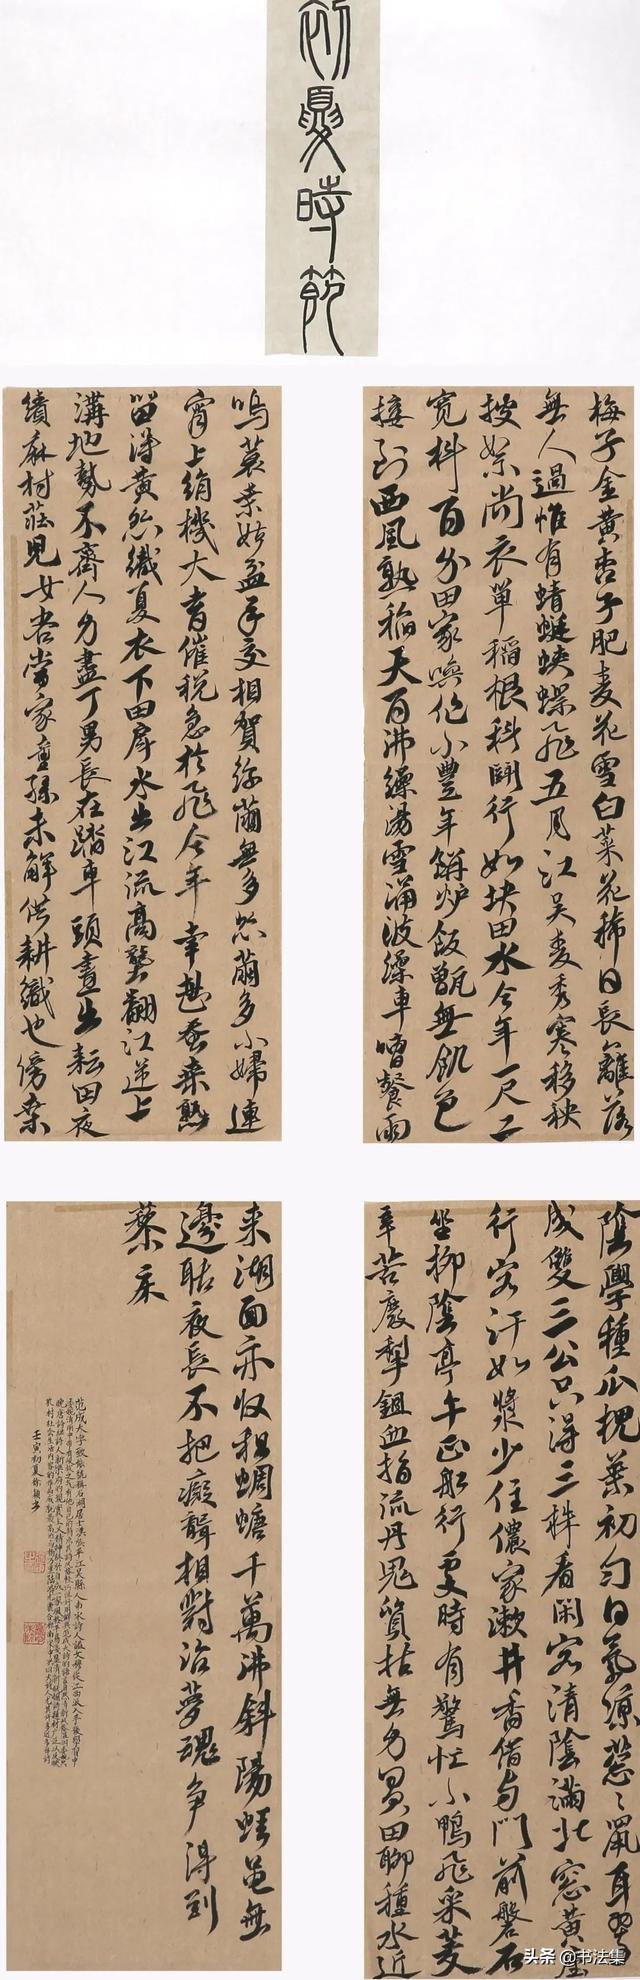 初夏時節
梅子金黃杏子肥麦花雪白菜花稀日長籬落
無人過惟有蜻蜓蛺蝶飛五月江吳麦秀寒移秧
披絮尚衣單稻根科鬥行如块田水今年一尺二
宽料百分田家喚作小豐年餅炉飯甑無飢色
接到西風熟稲天百沸繰湯雪涌波繰車嘈囋雨
鳴蓑桒姑盆手交相賀绵繭無多丝繭多小婦連
宵上绢機大耆催税急於飛今年幸甚蚕桒熟
留得黄丝織夏衣下田戽水出江流高壟翻江逆上
溝地勢不齊人力盡丁男長在踏車頭晝出耘田夜
績麻村莊児女各當家童孫未解供耕織也傍桒
陰學種瓜槐葉初匀日氣凉葱々鼠耳翠
成雙三公只得三株看闲客清陰滿北窓黄塵
行客汗如漿少住儂家漱井香借与門前磐石
坐柳陰亭午正
船行
時有驚忙小鴨飛采菱
辛苦廢犁鉏血指流丹鬼質枯無力買田聊種水近
来湖面亦收租蜩螗千萬沸斜陽蛙黾無
邊聒夜長不把癡聾相對治夢魂争得到
藜床
范成大字致能號稱石湖居士漢族平江吴縣人南宋詩人
壬寅初夏徐
头条 @书法集